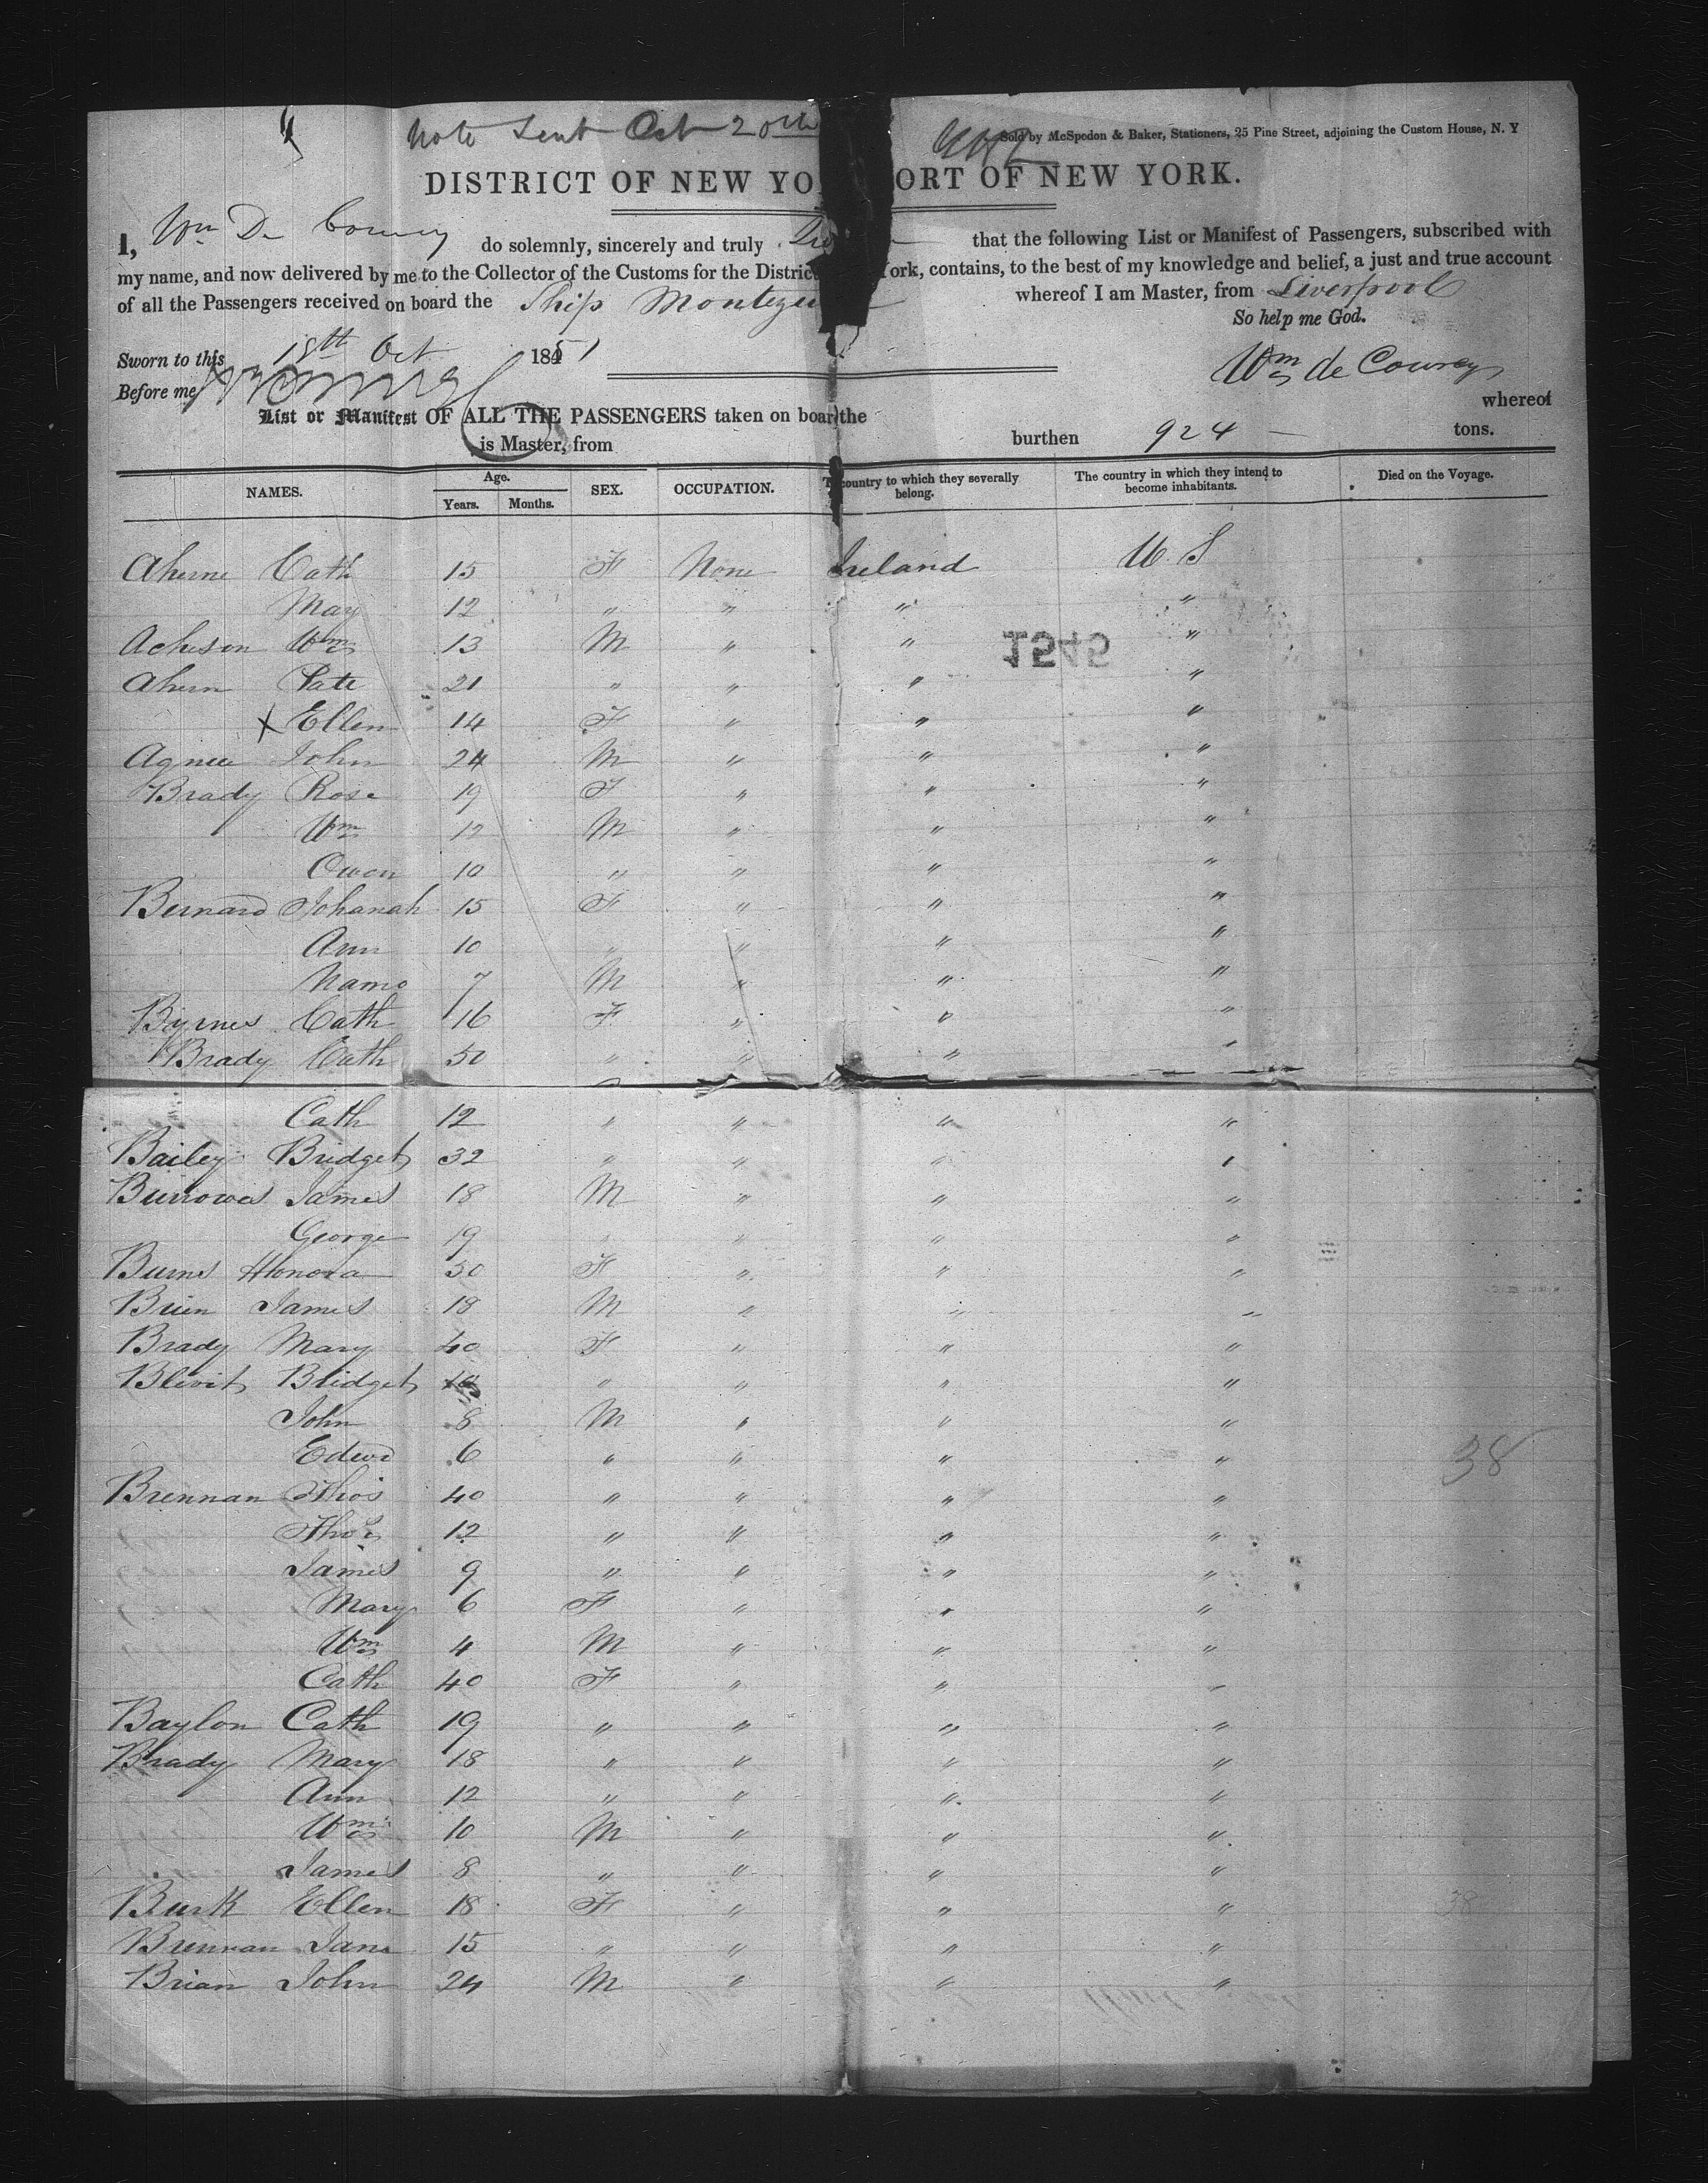 Note Sent Oct 20th
Sold by McSpedon & Baker, Stationers, 25 Pine Street, adjoining the Custom House, N. Y
DISTRICT OF NEW YO ORT OF NEW YORK.
I, Wm De Courcy do solemnly, sincerely and truly that the following List or Manifest of Passengers, subscribed with
my name, and now delivered by me to the Collector of the Customs for the Distric ork, contains, to the best of my knowledge and belief, a just and true account
of all the Passengers received on board the Ship Montezu whereof I am Master, from Liverpool
So help me God.
Sworn to this 18th Oct 1851
Wm de Courcy
Before me
List or Manifest OF ALL THE PASSENGERS taken on board the whereof
is Master, from burthen 924 tons.
NAMES. Age. Years. Months. SEX. OCCUPATION. country to which they severally belong. The country in which they intend to become inhabitants. Died on the Voyage.
Aherne Cath 15 F None Ireland U. S
May 12 " " " "
Acheson Wm 13 M " " "
1545
Ahern Pate 21 " " " "
x Ellen 14 F " " "
Agnew John 24 M " " "
Brady Rose 19 F " " "
Wm 12 M " " "
Owen 10 " " " "
Bernard Johanah 15 F " " "
Ann 10 " " " "
Namo 7 M " " "
Byrnes Cath 16 F " " "
Brady Cath 50 " " " "
Cath 12 " " " "
Bailey Bridget 32 " " " "
Burrowes James 18 M " " "
George 19 " " " "
Burns Honora 50 F " " "
Brien James 18 M " " "
Brady Mary 40 F " " "
Blevit Bridget " " " "
John 8 M " " "
Edwd 6 " " " "
38
Brennan Thos 40 " " " "
Thos 12 " " " "
James 9 " " " "
Mary 6 F " " "
Wm 4 M " " "
Cath 40 F " " "
Baylon Cath 19 " " " "
Brady Mary 18 " " " "
Ann 12 " " " "
Wm 10 M " " "
James 8 " " " "
Burk Ellen 18 F " " " 38
Brennan Jane 15 " " " "
Brian John 24 M " " "